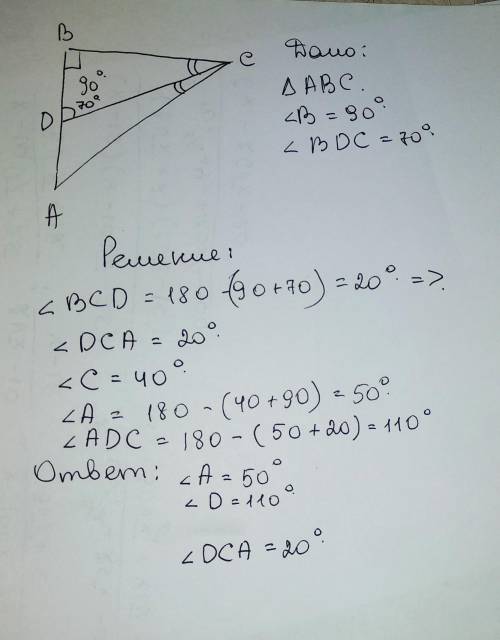 B
C
90°
70°
D
A
Дано:
△ABC.
∠B = 90°
∠BDC = 70°
Решение:
∠BCD = 180-(90+70) = 20° =>.
∠DCA = 20°
∠C = 40°
∠A = 180 - (40+90) = 50°
∠ADC = 180 - (50+20) = 110°
Ответ: ∠A = 50°
∠D = 110°
∠DCA = 20°